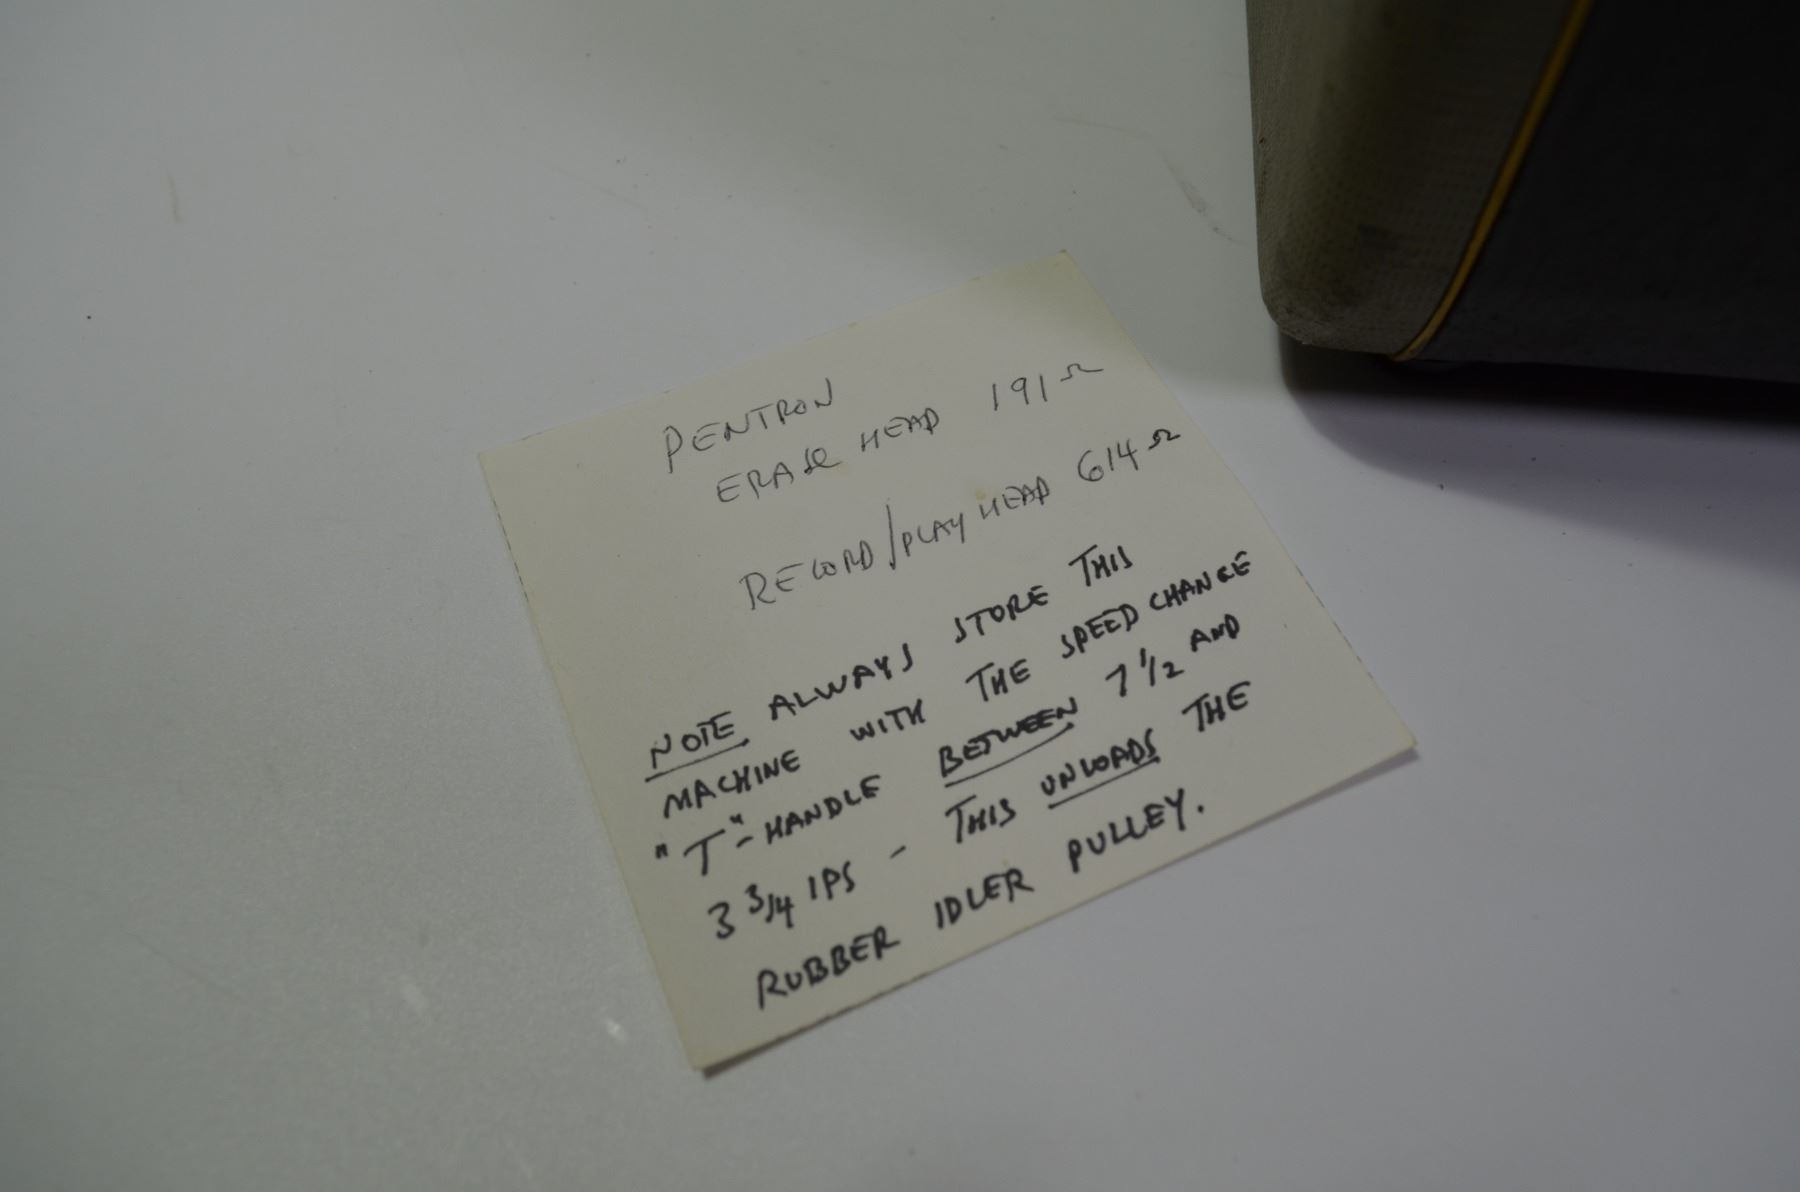 PENTRON
ERASE HEAD 191Ω
RECORD/PLAY HEAD 614Ω
NOTE ALWAYS STORE THIS
MACHINE WITH THE SPEED CHANGE
"T"-HANDLE BETWEEN 7 1/2 AND
3 3/4 IPS - THIS UNLOADS THE
RUBBER IDLER PULLEY.